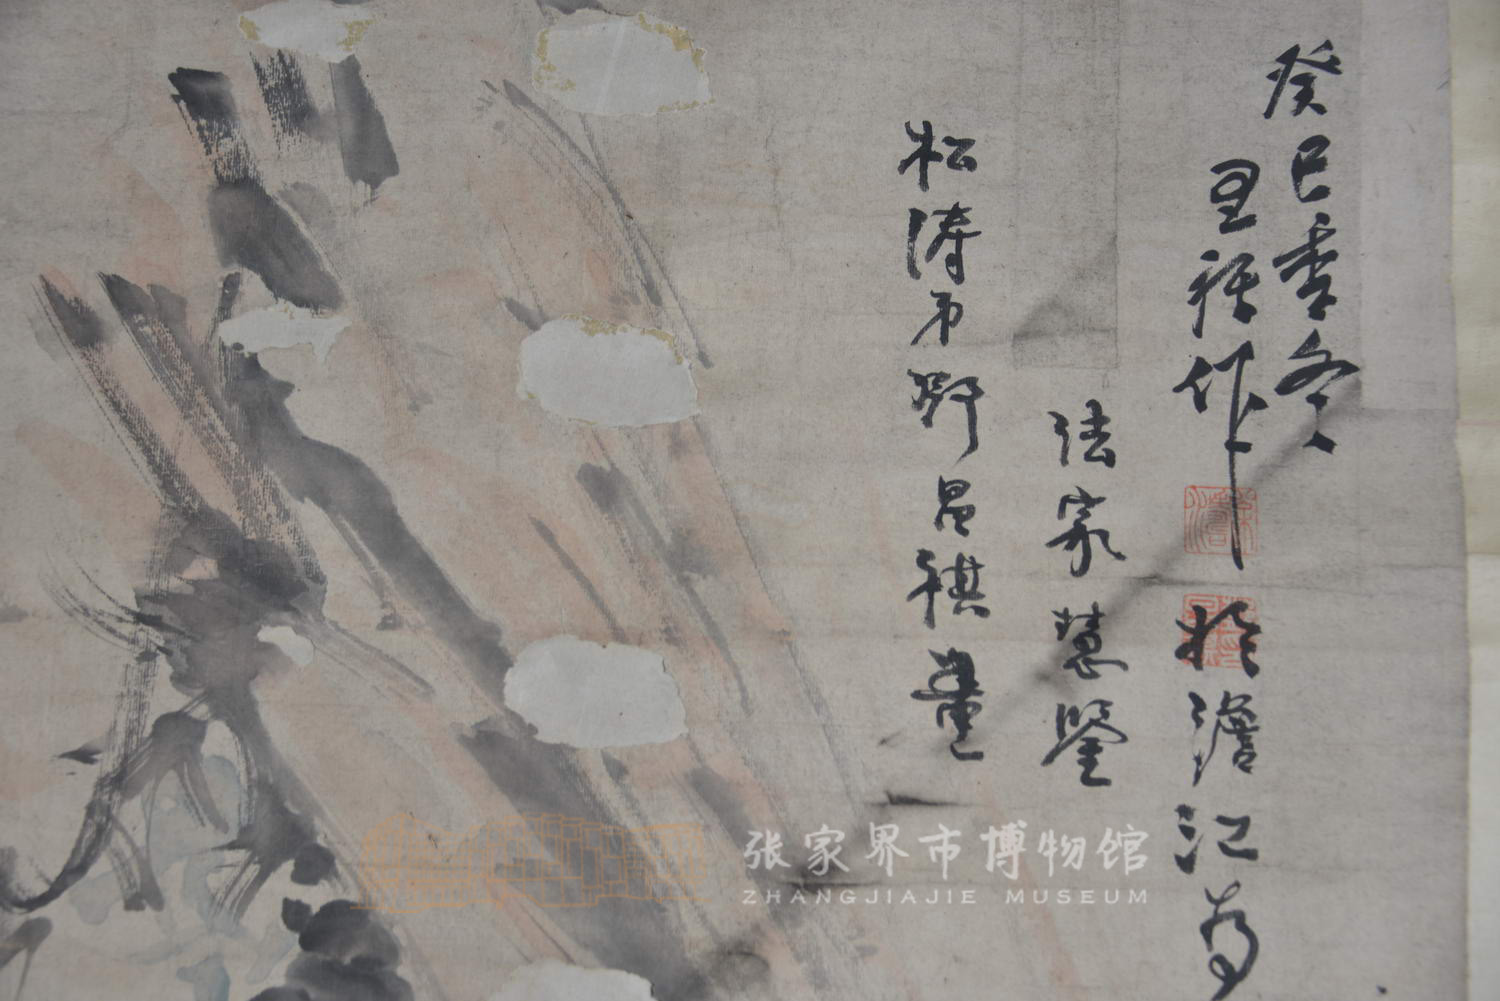 癸巳季冬
里祥作於澹江為
法家慧鑒
松濤弟野昌祺畫
张家界市博物馆
ZHANGJIAJIE MUSEUM